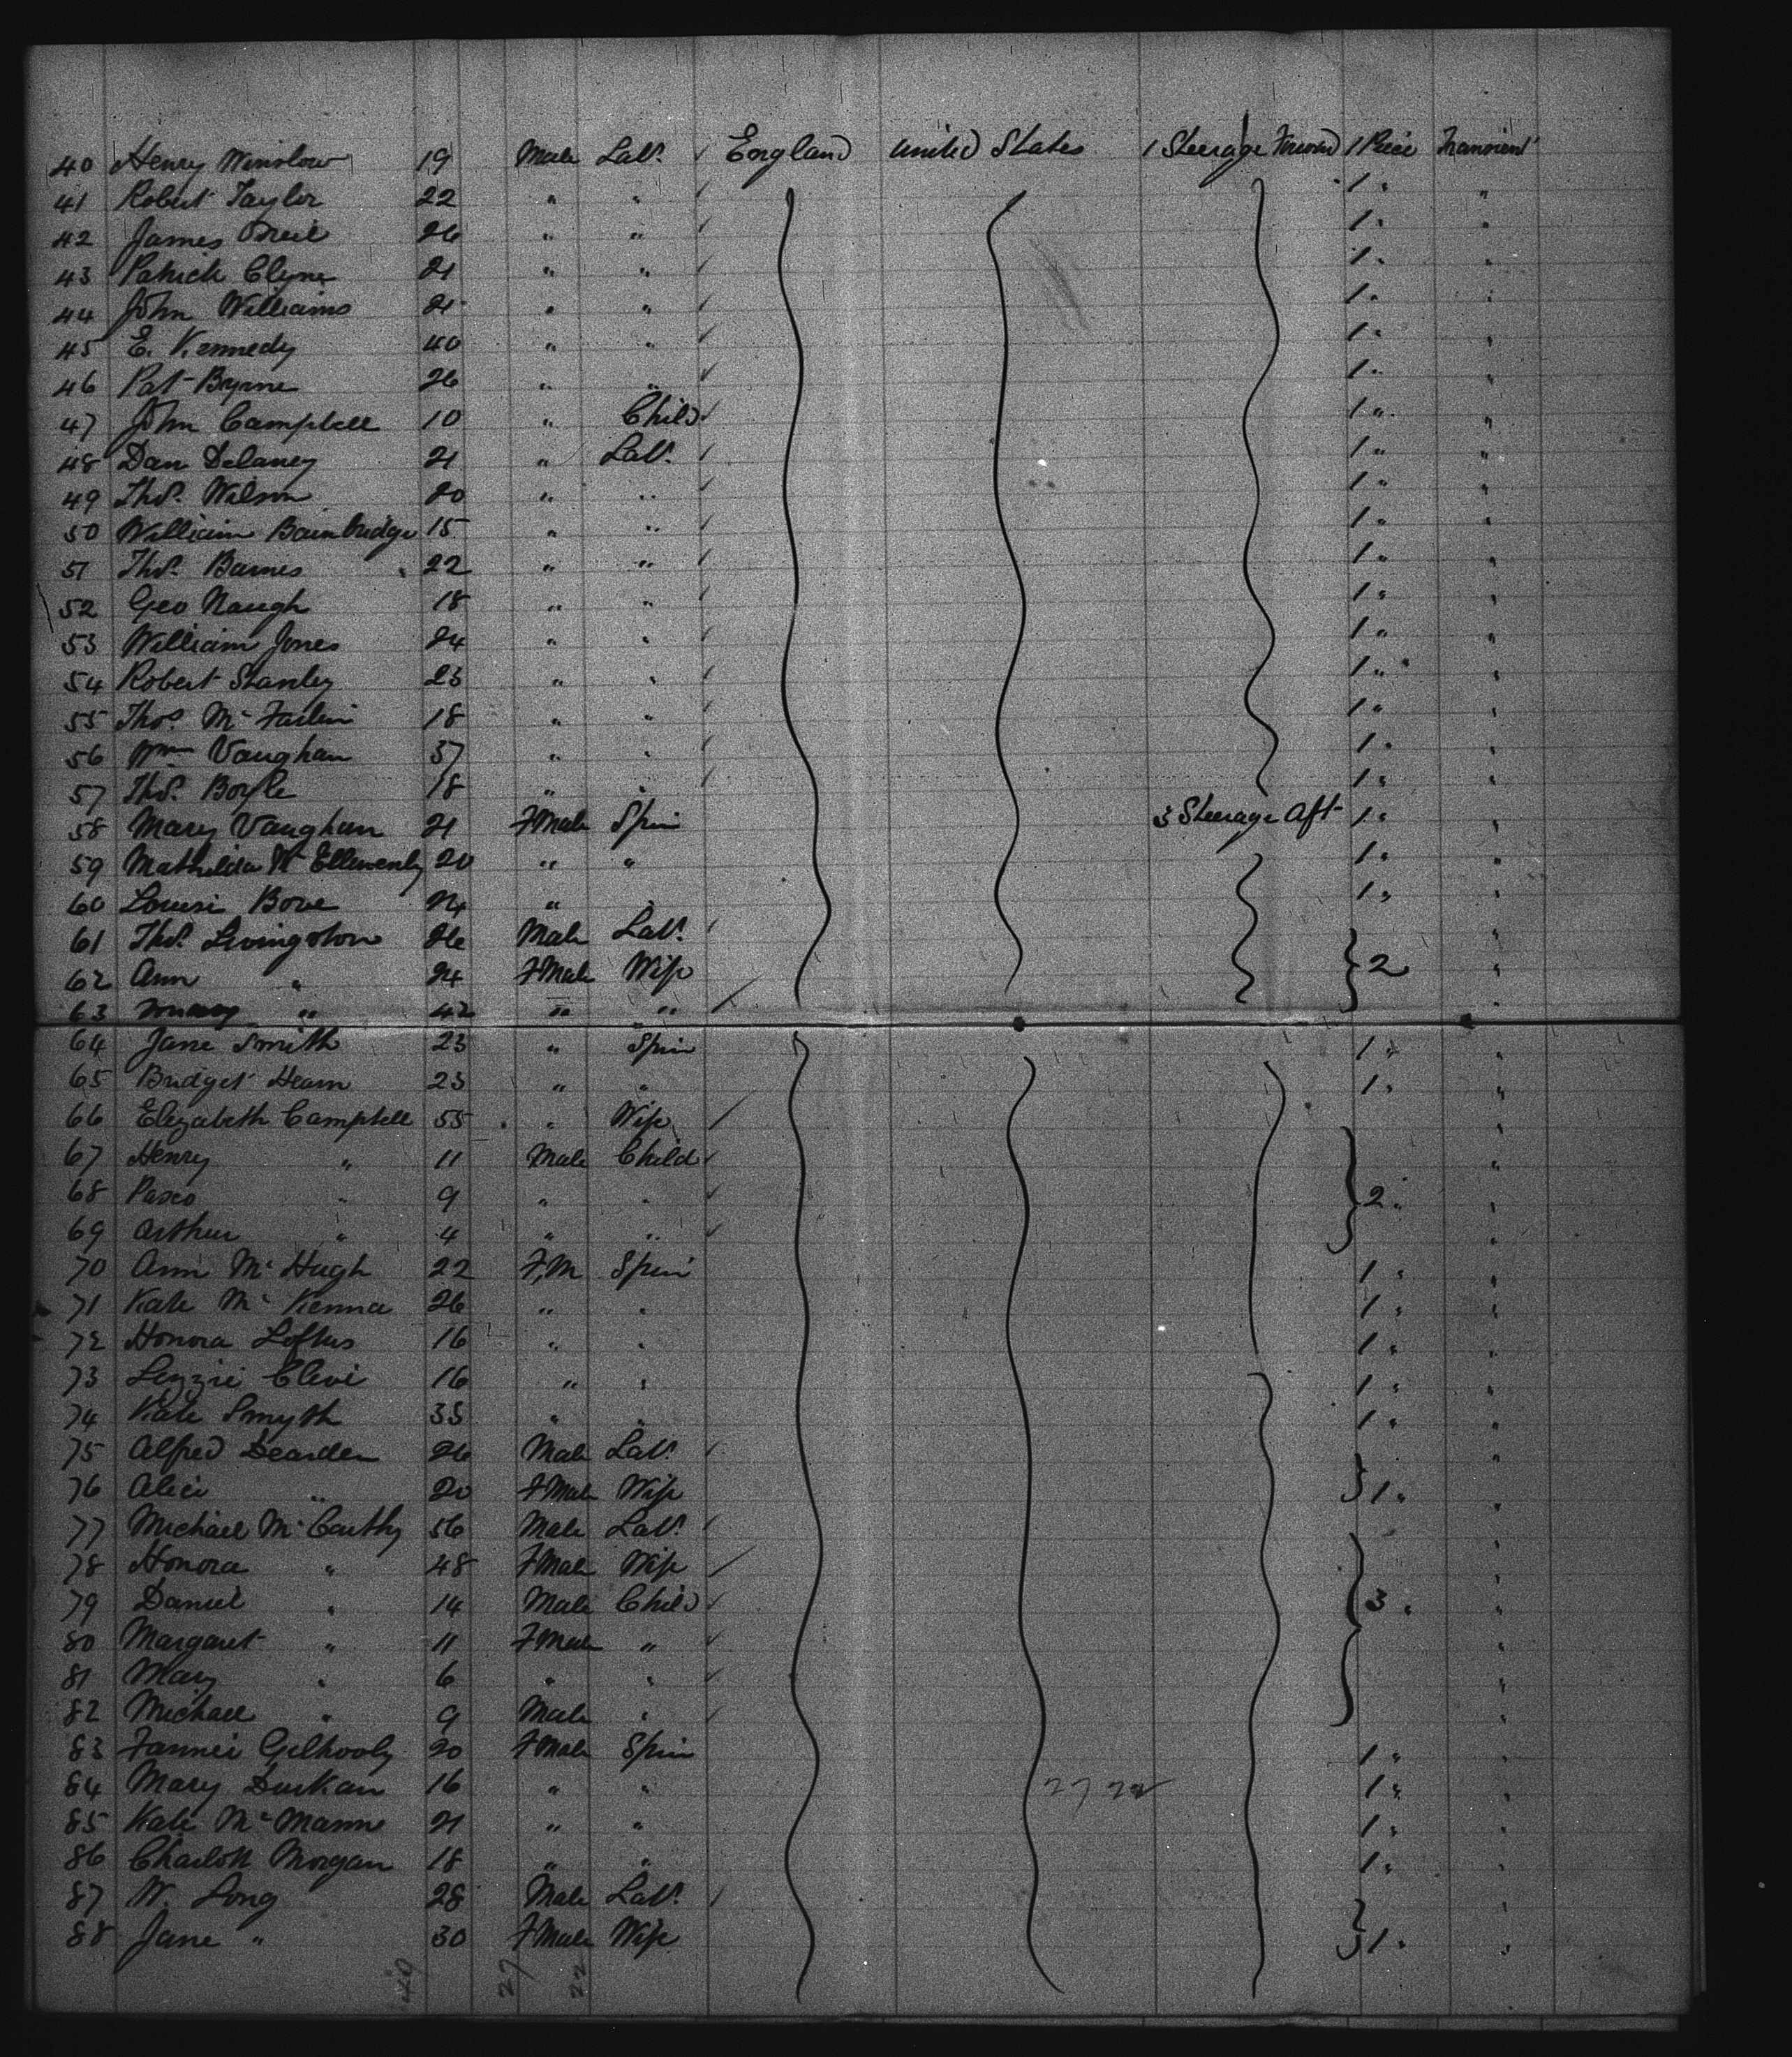 40 Henry Winslow 19 Male Labr. England United States 1 Steerage Forward 1 Piece Transient
41 Robert Taylor 22 " " 1 " "
42 James Oneil 26 " " 1 " "
43 Patrick Clyne 21 " " 1 " "
44 John Williams 21 " " 1 " "
45 E. Kennedy 40 " " 1 " "
46 Pat Byrne 26 " " 1 " "
47 John Campbell 10 " Child 1 " "
48 Dan Delaney 21 " Labr. 1 " "
49 Thos. Wilson 20 " " 1 " "
50 William Bainbridge 15 " " 1 " "
51 Thos. Barnes 22 " " 1 " "
52 Geo Naugh 18 " " 1 " "
53 William Jones 24 " " 1 " "
54 Robert Stanley 23 " " 1 " "
55 Thos Mc 18 " " 1 " "
56 Wm Vaughan 37 " " 1 " "
57 Thos. Boyle 18 " " 1 " "
58 Mary Vaughan 21 FMale Spin 3 Steerage Aft 1 " "
59 Mathilda 20 " " 1 " "
60 Louisi Bove 24 " " 1 " "
61 Thos. Livingston 26 Male Labr. "
62 Ann " 24 FMale Wife 2 "
63 " 42 " " "
64 Jane Smith 23 " Spin 1 " "
65 Bridget Hearn 23 " " 1 " "
66 Elizabeth Campbell 55 " Wife "
67 Henry " 11 Male Child "
68 " 9 " " 2 " "
69 Arthur " 4 " " "
70 Ann Mc Hugh 22 F,M Spin 1 " "
71 Kate Mc Kenna 26 " " 1 " "
72 Honora Loftus 16 " " 1 " "
73 Lizzie Clevi 16 " " 1 " "
74 Kate Smyth 35 " " 1 " "
75 Alfred Dearden 26 Male Labr. "
76 Alice " 20 FMale Wife 1 " "
77 Michael Mc Carthy 56 Male Labr. "
78 Honora " 48 FMale Wife "
79 Daniel " 14 Male Child 3 " "
80 Margaret " 11 FMale " "
81 Mary " 6 " " "
82 Michael " 9 Male " "
83 Fannie Gilhooly 20 FMale Spin 1 " "
84 Mary Durkan 16 " " 1 " "
85 Kate Mc Manne 21 " " 1 " "
86 Charlott Morgan 18 " " 1 " "
87 W. Long 28 Male Labr. "
88 Jane " 30 FMale Wife 1 " "
40 27 22